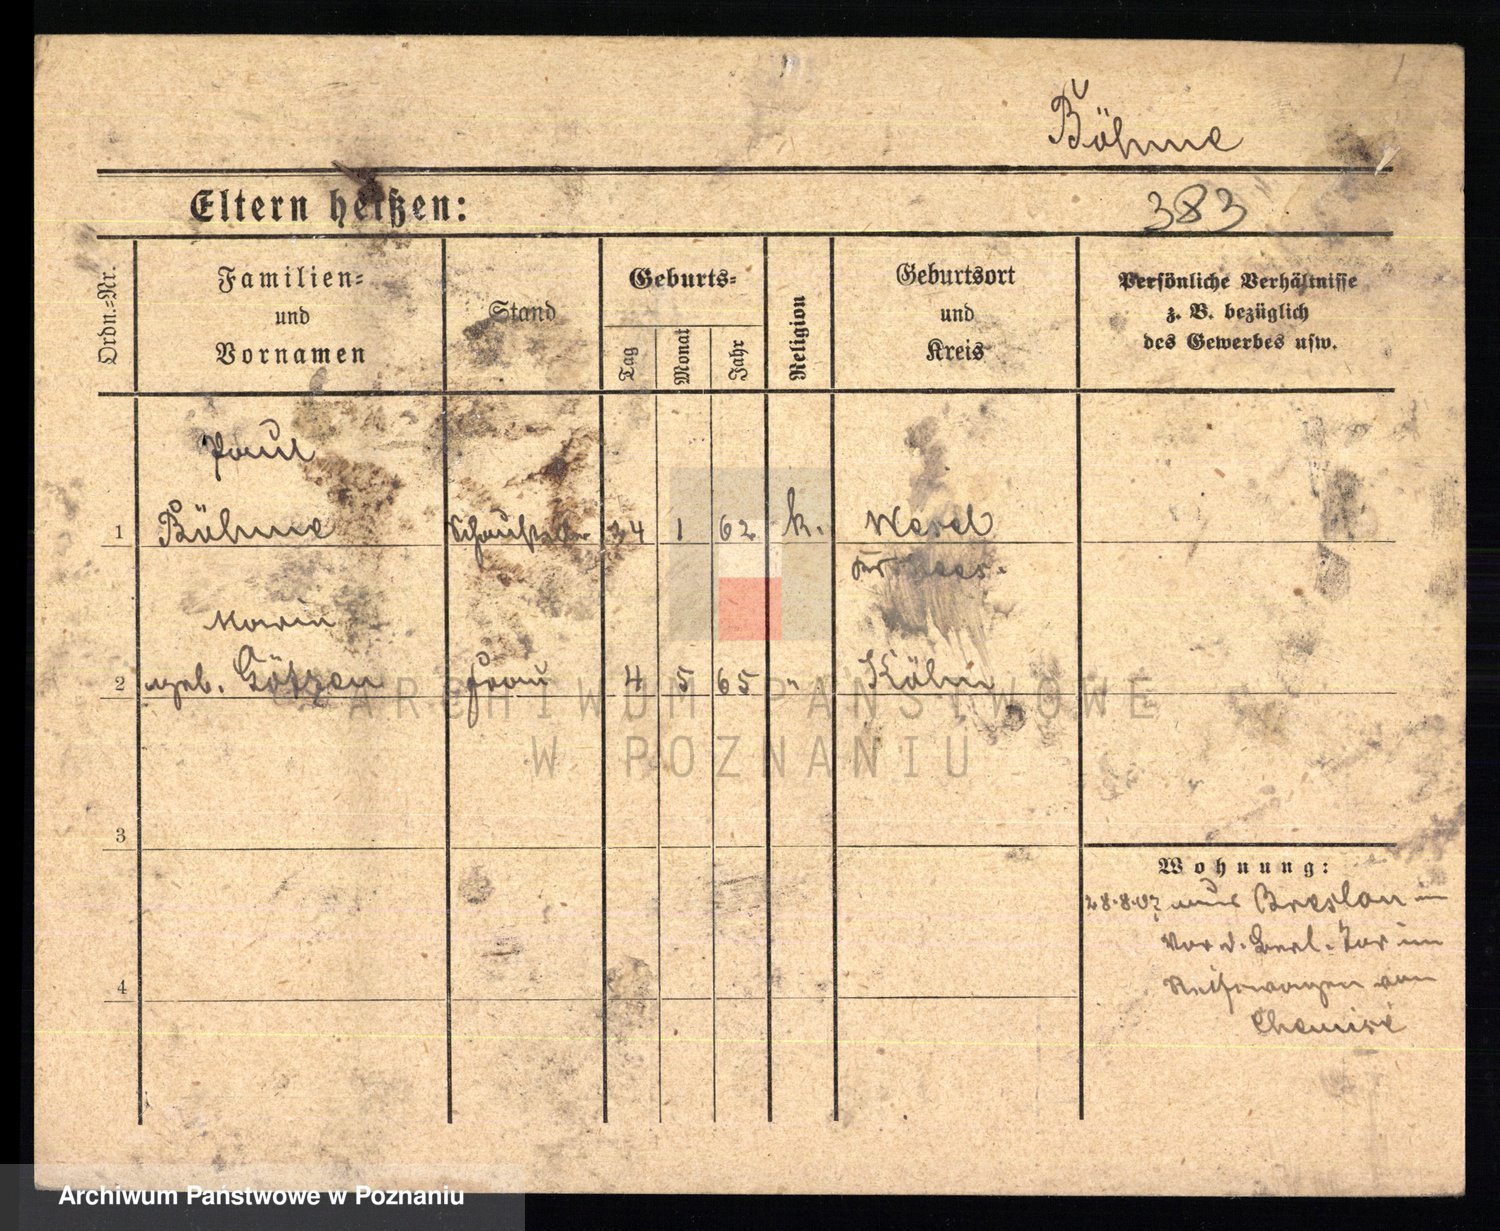 Böhme
Eltern heißen:
383
Ordn.-Nr.
Familien-
und
Vornamen
Stand
Geburts-
Tag
Monat
Jahr
Religion
Geburtsort
und
Kreis
Persönliche Verhältnisse
z. B. bezüglich
des Gewerbes usw.
Paul
1 Böhme Schausteller 24 1 62 k. Wesel
Kr. Rees.
Maria
2 geb. Götzen Frau 4 5 65 " Köln
3
4
Wohnung:
28.8.07 aus Breslau
vor d. Berl. Tor im
Reisewagen von
ARCHIWUM PAŃSTWOWE
W POZNANIU
Archiwum Państwowe w Poznaniu